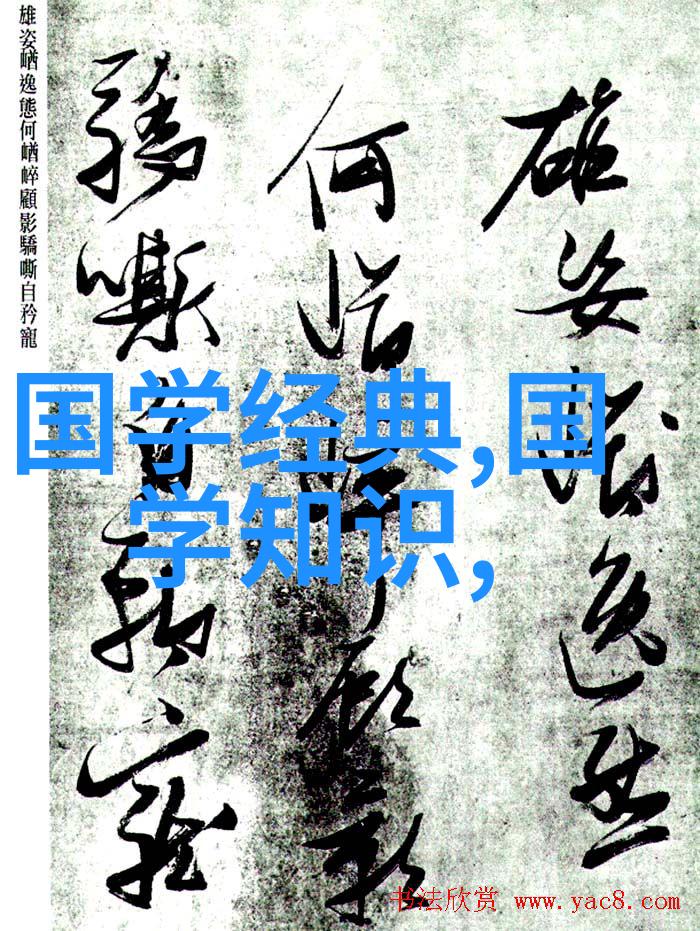 雄姿崷逸態
何崷崪顧影
驕嘶自矜寵
雄姿崷逸態何崷崪顧影驕嘶自矜寵
国学经典,国
学知识,
书法欣赏 www.yac8.com